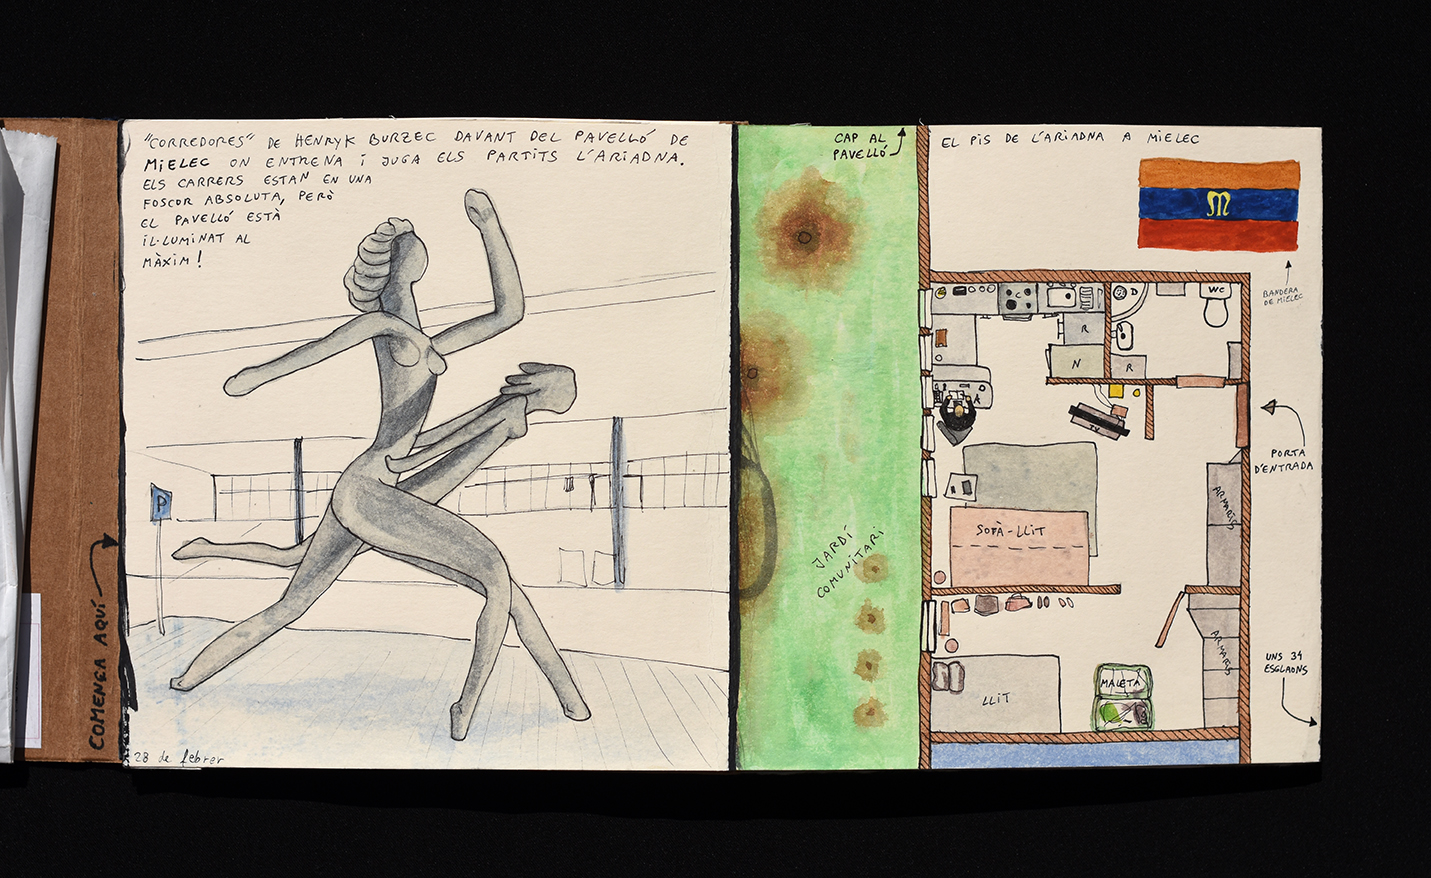 COMENÇA AQUÍ
"CORREDORES" DE HENRYK BURZEC DAVANT DEL PAVELLÓ DE
MIELEC ON ENTRENA I JUGA ELS PARTITS L'ARIADNA.
ELS CARRERS ESTAN EN UNA
FOSCOR ABSOLUTA, PERÒ
EL PAVELLÓ ESTÀ
IL·LUMINAT AL
MÀXIM!
P
28 de febrer
CAP AL
PAVELLÓ
JARDÍ
COMUNITARI
EL PIS DE L'ARIADNA A MIELEC
M
BANDERA
DE MIELEC
C
D
WC
R
N
R
A
TV
PORTA
D'ENTRADA
ARMARIS
SOFÀ-LLIT
ARMARIS
UNS 34
ESGLAONS
LLIT
MALETA